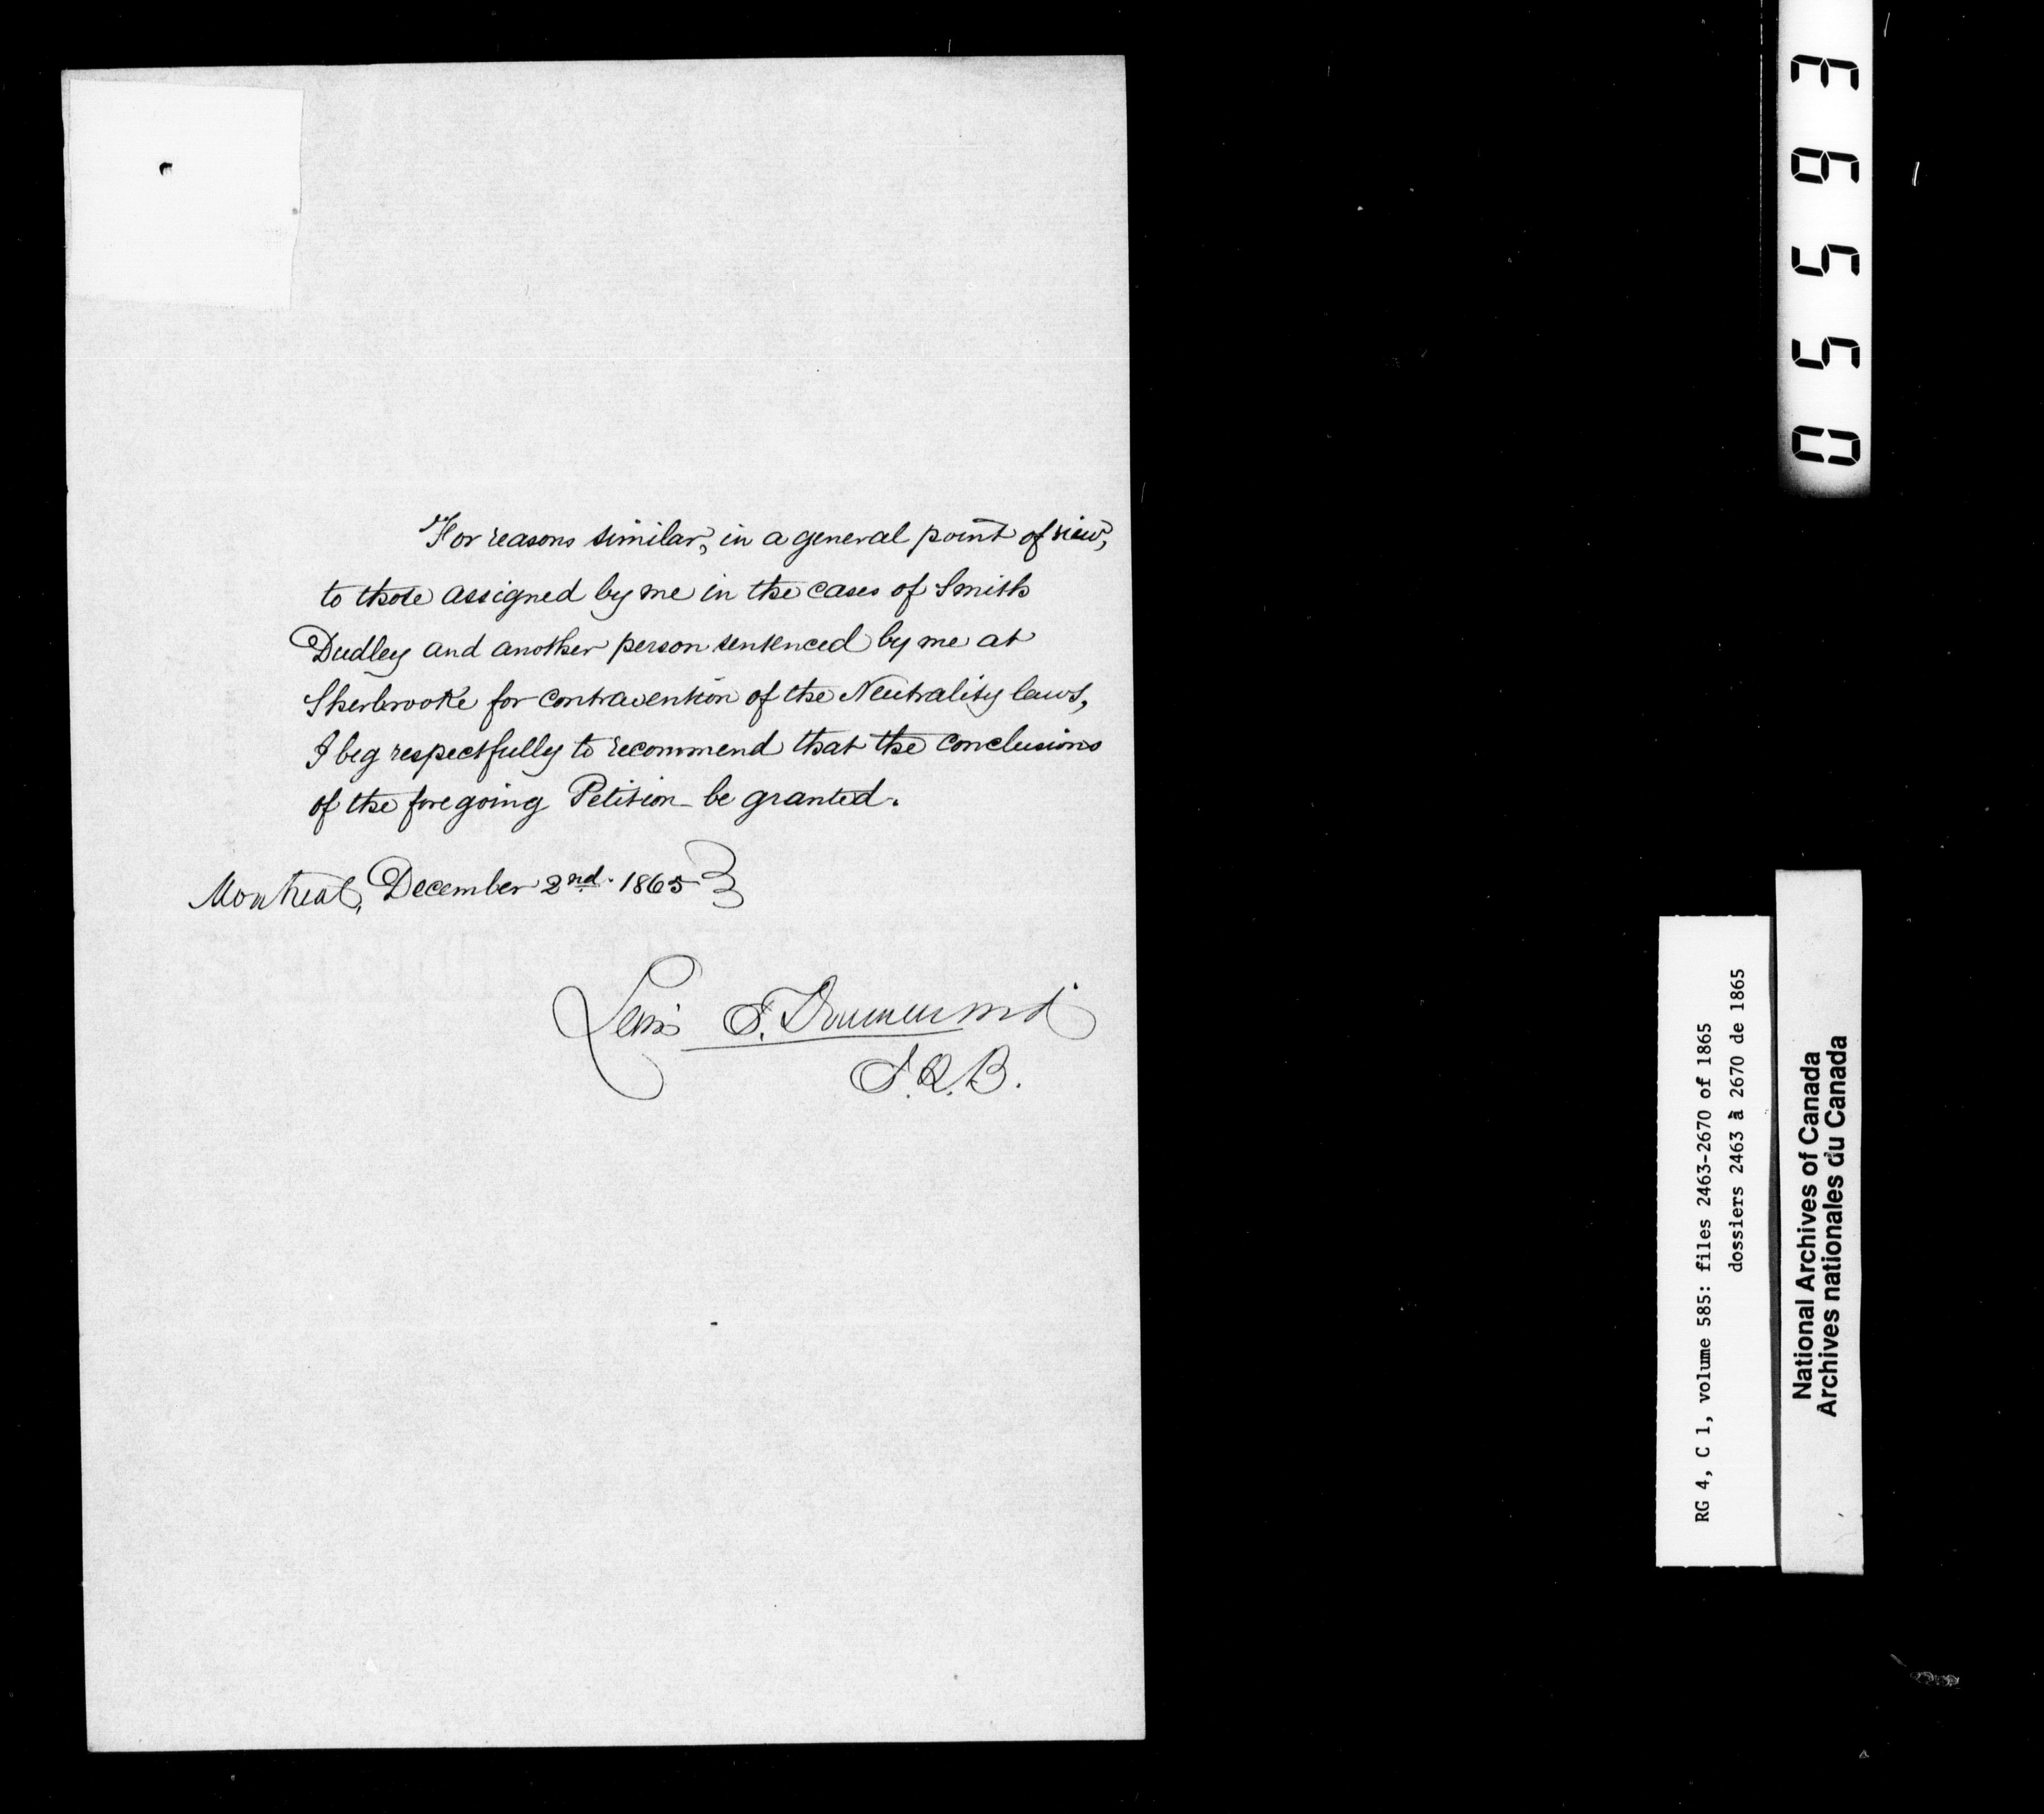 For reasons similar, in a general point of view,
to those assigned by me in the cases of Smith
Dudley and another person sentenced by me at
Sherbrooke for contravention of the Neutrality laws,
I beg respectfully to recommend that the conclusions
of the foregoing Petition be granted.
Montreal, December 2nd. 1865
Lewis T. Drummond
J.Q.B.
03655
RG 4, C 1, volume 585: files 2463-2670 of 1865
dossiers 2463 à 2670 de 1865
National Archives of Canada
Archives nationales du Canada